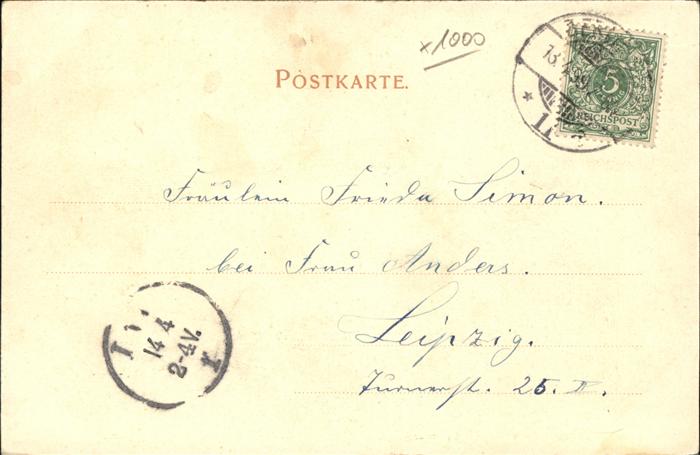 x1000
POSTKARTE.
13.4.99
5
REICHSPOST
Fräulein Frieda Simon.
bei Frau Anders.
Leipzig.
Turnerst. 25. II.
14 4
2-4V.